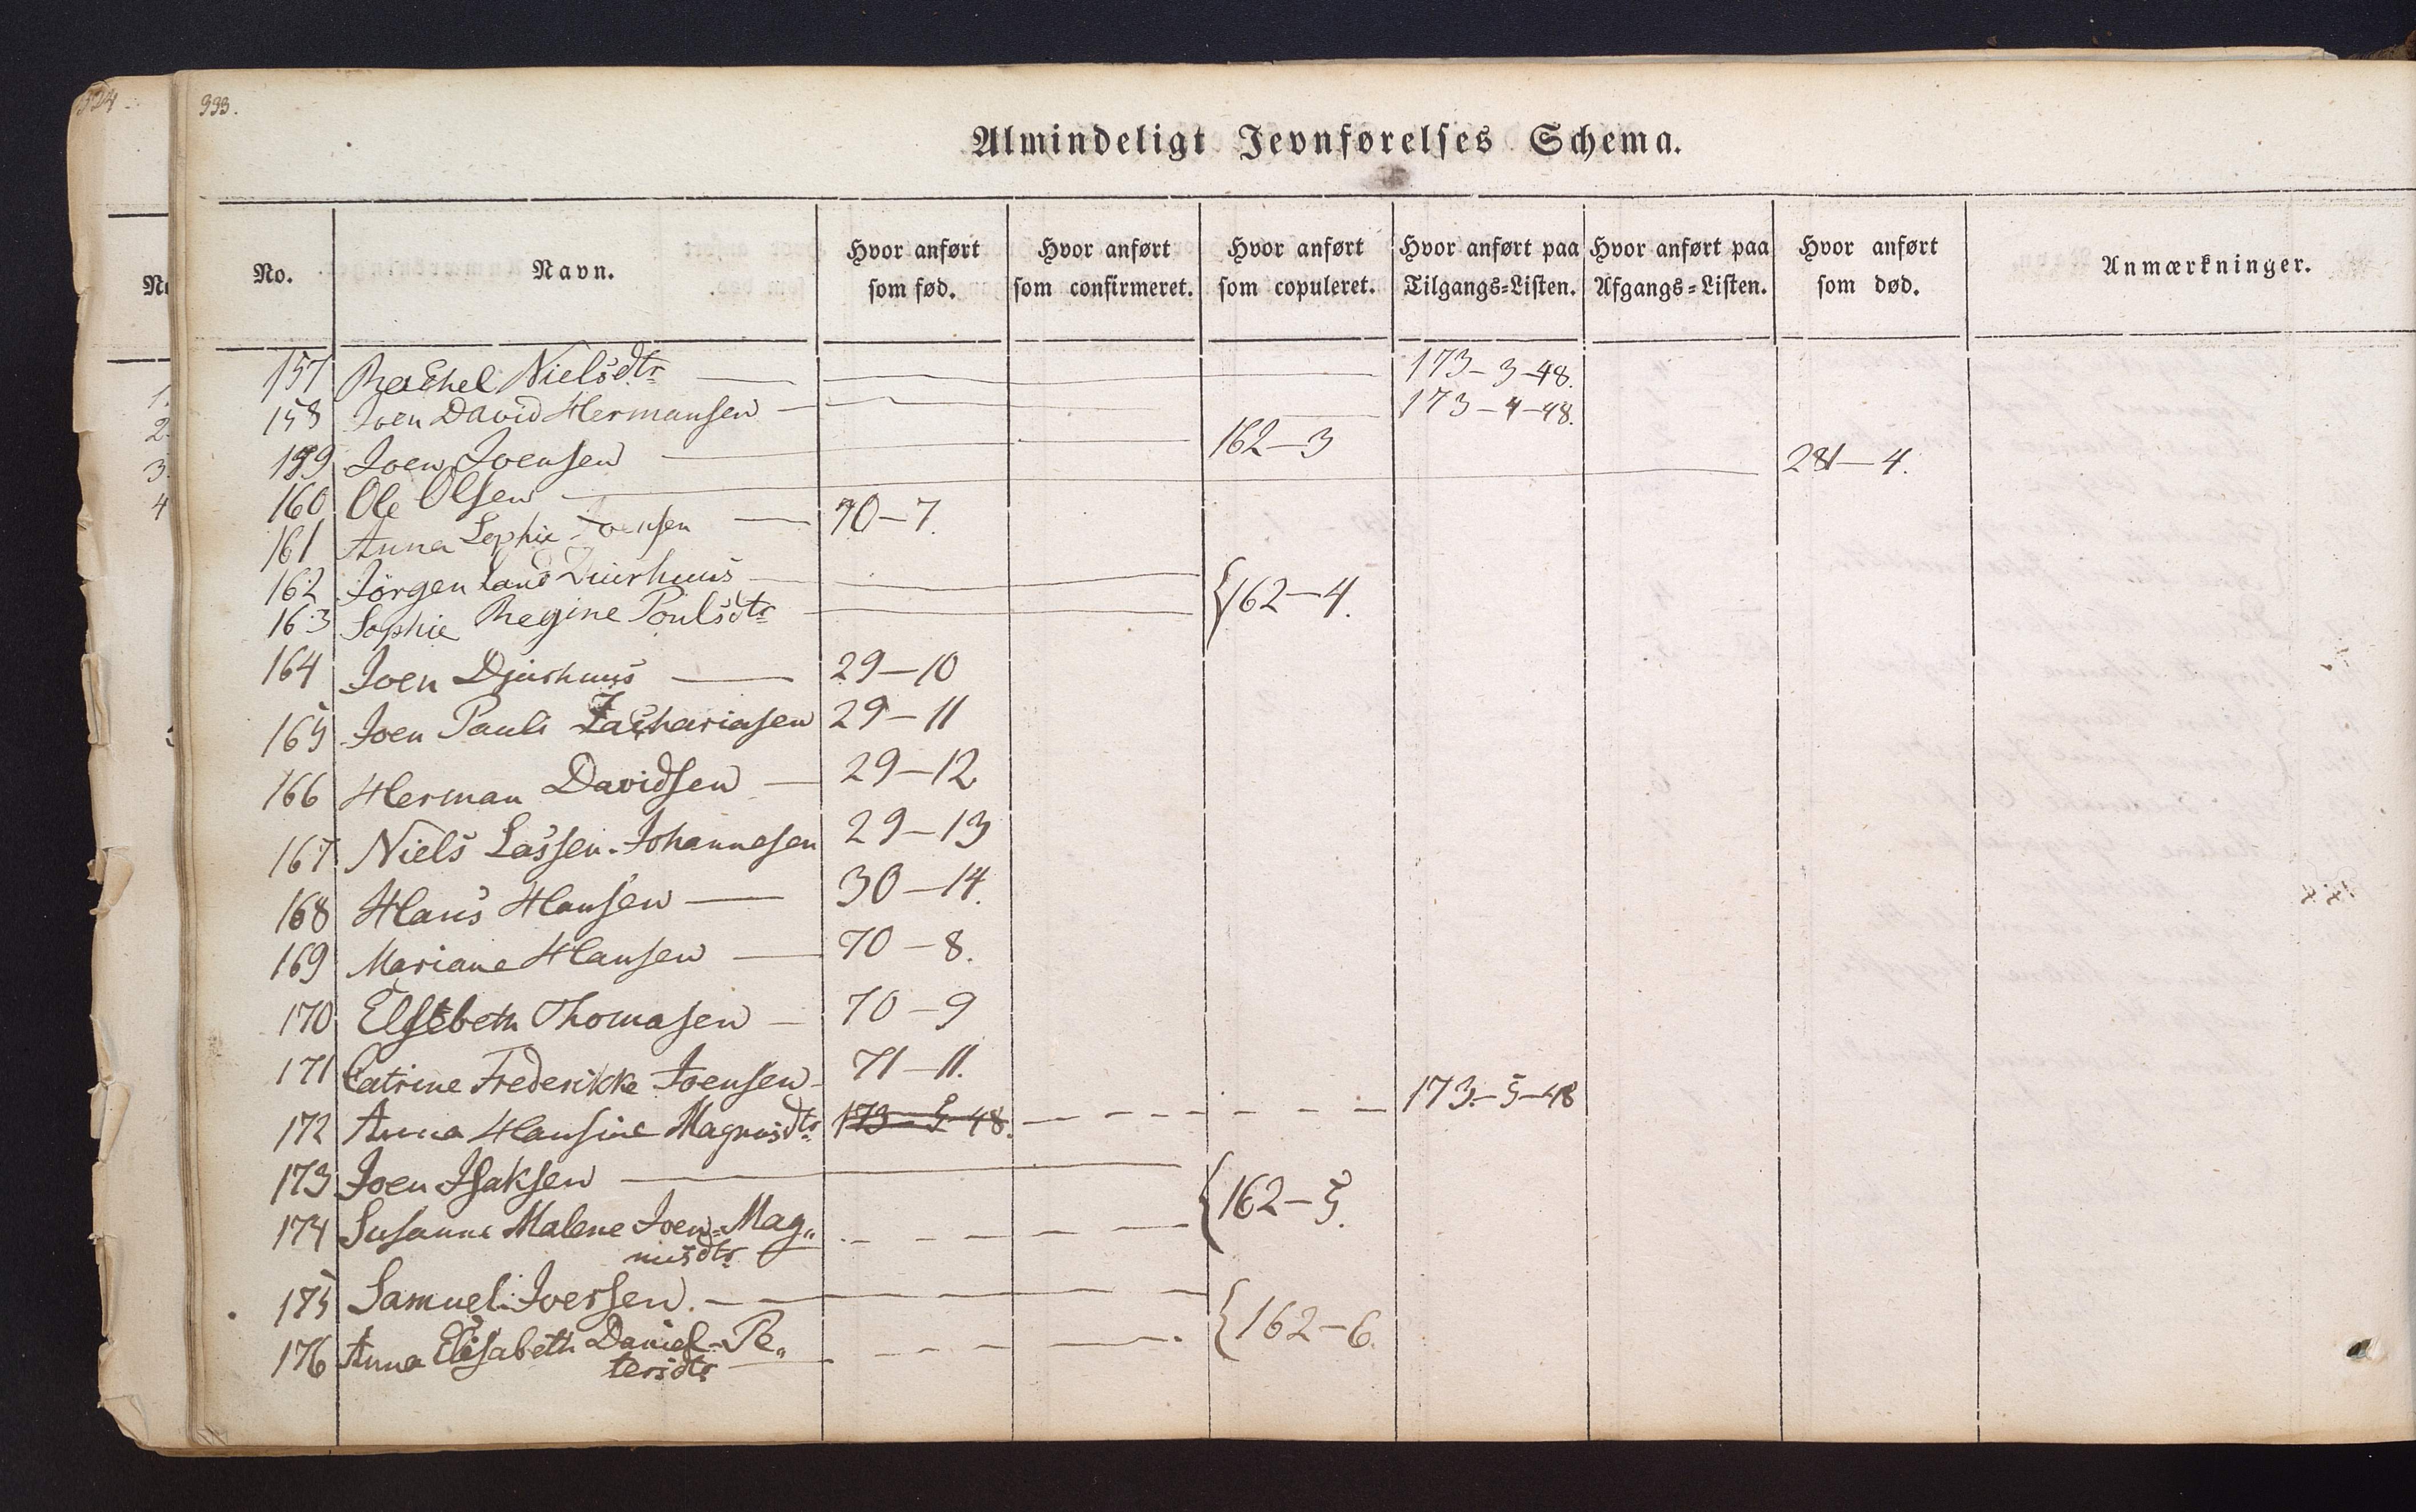 333.
Almindeligt Jevnførelses Schema.
No. Navn. Hvor anført som fød. Hvor anført som confirmeret. Hvor anført som copuleret. Hvor anført paa Tilgangs=Listen. Hvor anført paa Afgangs=Listen. Hvor anført som død. Anmærkninger.
157 Rachel Nielsdtr — 173-3-48.
158 Joen David Hermansen — 173-4-48.
159 Joen Joensen — 162-3
160 Ole Olsen — 281-4.
161 Anna Sophie Joensen — 70-7.
162 Jörgen Djurhuus — {162-4.
163 Sophie Regine Poulsdtr
164 Joen Djurhuus — 29-10
165 Joen Pauli Zachariasen 29-11
166 Herman Davidsen — 29-12
167 Niels Lassen Johannesen 29-13
168 Hans Hansen — 30-14.
169 Mariane Hansen — 70-8.
170 Elsebeth Thomasen — 70-9
171 Catrine Frederikke Joensen 71-11.
172 Anna Hansine Magnusdtr 173-5-48. — 173-5-48
173 Joen Isaksen — {162-5.
174 Susanne Malene Joen=Mag„
nusdtr
175 Samuel Joensen. — {162-6.
176 Anna Elisabeth Daniel-Pe„
tersdtr